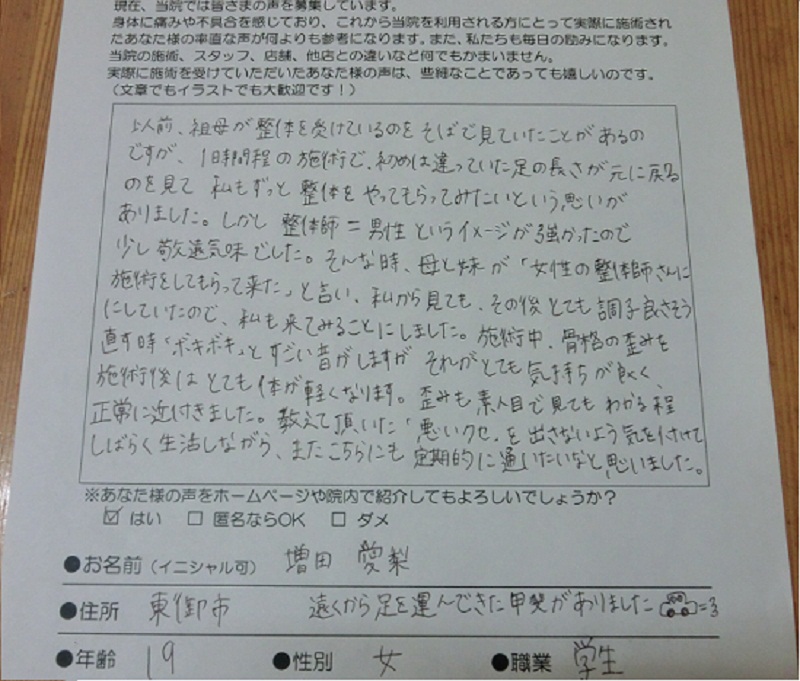 現在、当院では皆さまの声を募集しています。
身体に痛みや不具合を感じており、これから当院を利用される方にとって実際に施術され
たあなた様の率直な声が何よりも参考になります。また、私たちも毎日の励みになります。
当院の施術、スタッフ、店舗、他店との違いなど何でもかまいません。
実際に施術を受けていただいたあなた様の声は、些細なことであっても嬉しいのです。
(文章でもイラストでも大歓迎です!)
以前、祖母が整体を受けているのをそばで見ていたことがあるの
ですが、1時間程の施術で、初めは違っていた足の長さが元に戻る
のを見て 私もずっと 整体を やってもらってみたいという思いが
ありました。しかし 整体師=男性 というイメージが強かったので
少し敬遠気味でした。そんな時、母と妹が「女性の整体師さんに
施術をしてもらって来た」と言い、私から見ても、その後とても調子良さそう
にしていたので、私も来てみることにしました。施術中、骨格の歪みを
直す時「ボキボキ」とすごい音がしますが それがとても気持ちが良く、
施術後はとても体が軽くなります。歪みも素人目で見てもわかる程
正常に近付きました。教えて頂いた「悪いクセ」を出さないよう気を付けて
しばらく生活しながら、またこちらにも定期的に通いたいなと思いました。
※あなた様の声をホームページや院内で紹介してもよろしいでしょうか?
☑ はい □ 匿名ならOK □ ダメ
●お名前(イニシャル可) 増田 愛梨
●住所 東御市 遠くから足を運んできた甲斐がありました
●年齢 19 ●性別 女 ●職業 学生